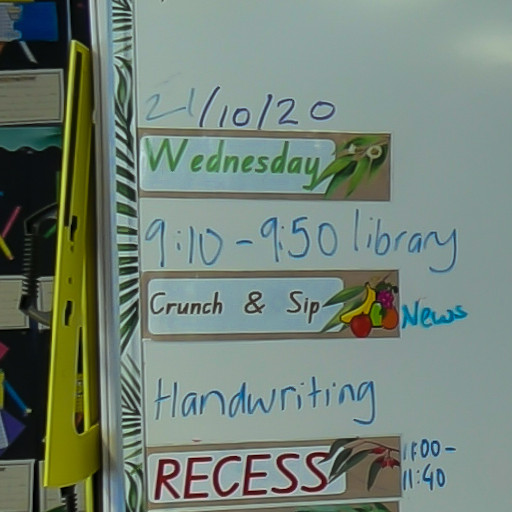 21/10/20
Wednesday
9:10-9:50 library
Crunch & Sip News
Handwriting
RECESS 11:00-
11:40